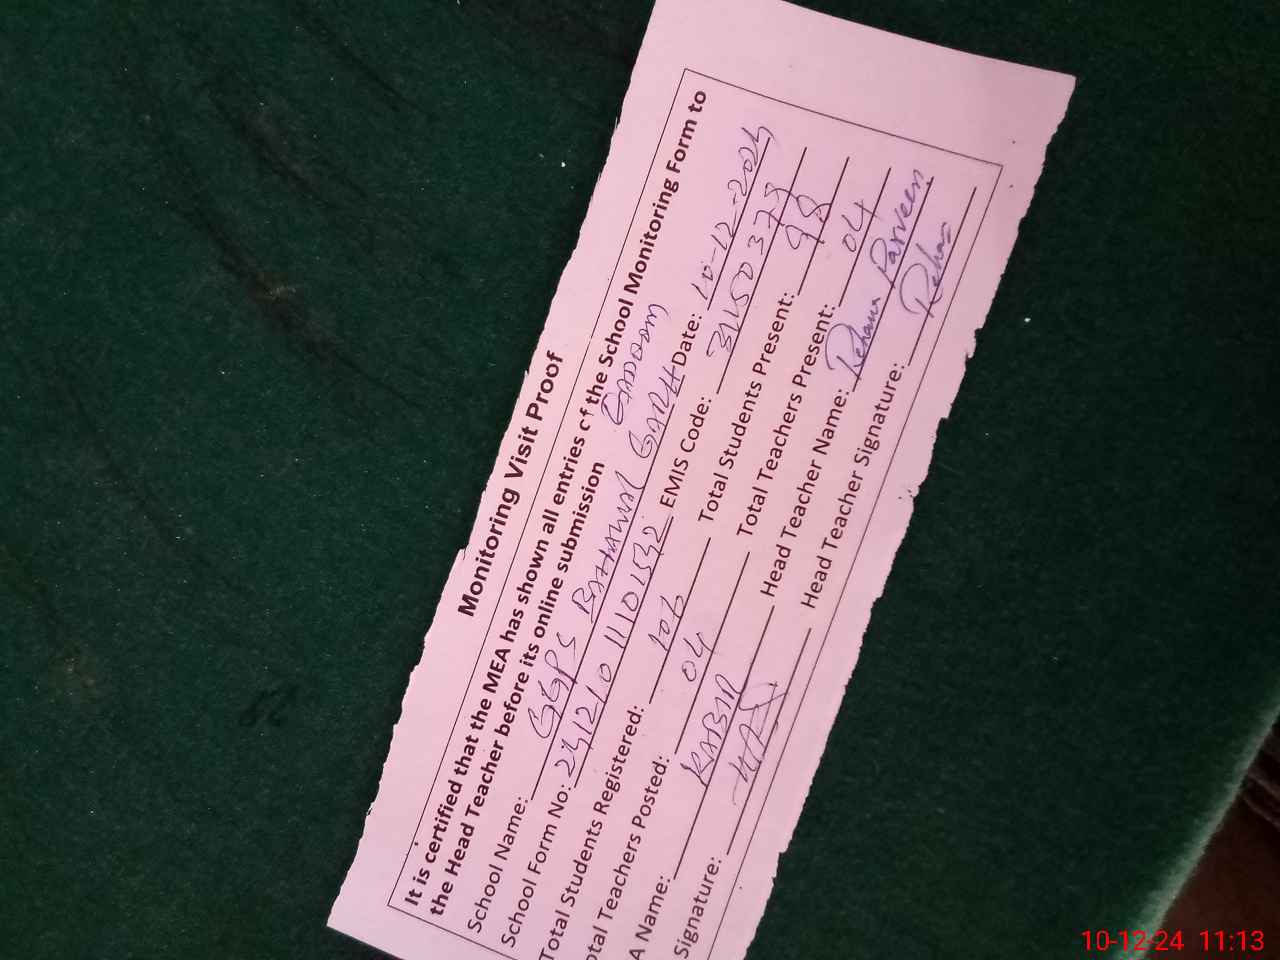 Monitoring Visit Proof
It is certified that the MEA has shown all entries of the School Monitoring Form to
the Head Teacher before its online submission
School Name: GGPS BAHAWAL GARH Date: 10-12-2024
School Form No: 241210 1110 2532 EMIS Code: 31150373
Total Students Registered: 106 Total Students Present: 98
otal Teachers Posted: 04 Total Teachers Present: 04
A Name: KABIR Head Teacher Name: Rehana Parveen
Signature: Head Teacher Signature: Rehana
10-12-24 11:13